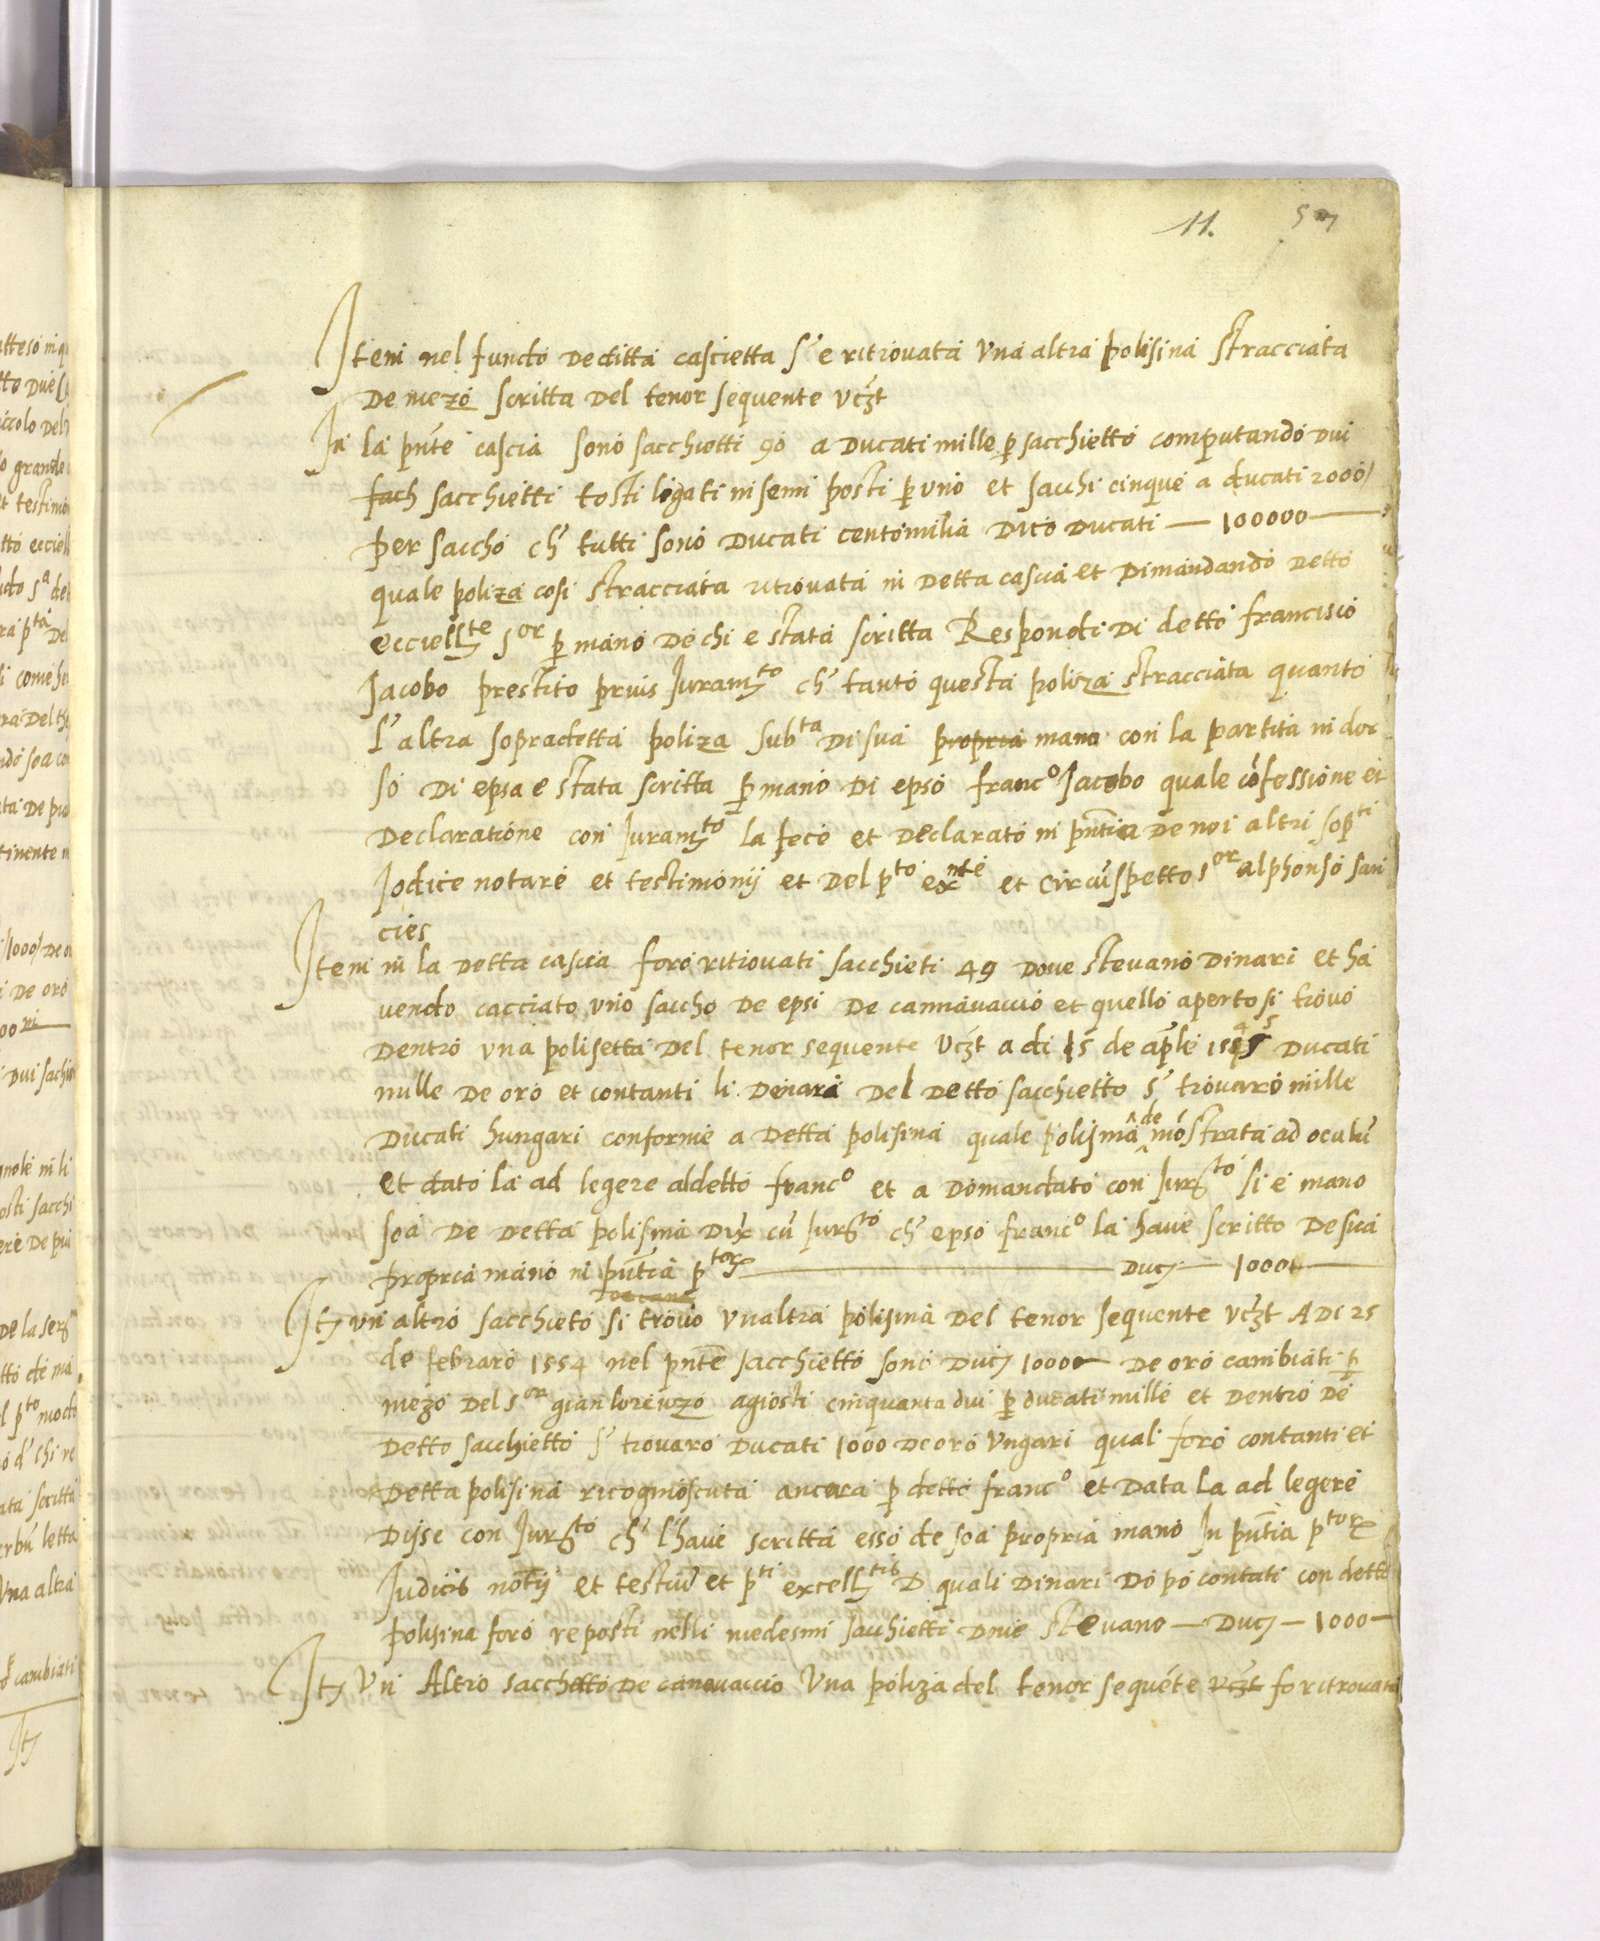 11. 57
Item nel fundo de ditta cascietta s'e ritrovata una altra polisina stracciata
de mezo scritta del tenor sequente vczt
In la pnte cascia sono sacchietti 90 a ducati mille p sacchietto computando dui
sach sacchietti tosti ligati insemi posti p uno et sacchi cinque a ducati 2000/
per saccho ch' tutti sono ducati centomilia dico ducati — 100000 —
quale poliza cosi stracciata ritrovata in detta cascia et dimandando detto
ecciellte sor p mano de chi e stata scritta Respondi di detto francisco
Jacobo prestito prius Juramto ch' tanto questa poliza stracciata quanto
l'altra sopradetta poliza subta di sua propria mano con la partita in dor
so di epsa e stata scritta p mano di epso franco Jacobo quale cōfessione et
declaratione con Juramto la fece et declarato in pntia de noi altri sopti
Jodice notare et testimonij et del pto exnte et circūspetto sor alphonso san
cies
Item in la detta cascia foro ritrovati sacchieti 49 dove stevano dinari et ha
vendo cacciato uno saccho de epsi de cannavaccio et quello aperto si trovo
dentro una polisetta del tenor sequente vczt a di 15 de aple 1545 ducati
mille de oro et contanti li denari del detto sacchietto s' trovaro mille
ducati hungari conforme a detta polisina quale polisina de mōstrata ad oculū
et dato la ad legere al detto franco et a domandato con Jurto si e mano
soa de detta polisina dix cū Jurto ch' epso franco la have scritto de sua
propria mano in pntia ptor — duc — 1000 —
It un altro sacchieto si trovo unaltra polisina del tenor sequente vczt a di 25
de febraro 1554 nel pnte sacchietto sono duc 1000 — de oro cambiati p
mezo del sor gian lorenzo agiosti cinquanta dui p ducati mille et dentro de
detto sacchietto s' trovaro ducati 1000 de oro ungari quali foro contanti et
detta polisina ricognoscuta ancora p detto franco et data la ad legere
disse con Jurto ch' l'have scritta esso de soa propria mano In pntia ptor
Judicis notij et testiū et pti excelltis D quali dinari dopo contati con detta
polisina foro reposti nelli medesmi sacchietti dove stevano — duc — 1000 —
It un Altro sacchetto de canavaccio una poliza del tenor sequēte vczt fo ritrovata